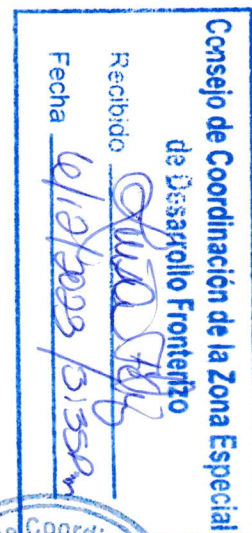 Consejo de Coordinación de la Zona Especial
de Desarrollo Fronterizo
Recibido
Fecha 6/12/2023 / 3:35 Pm
Coordi